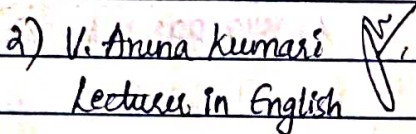 2) V. Aruna Kumari
Lecturer, in English